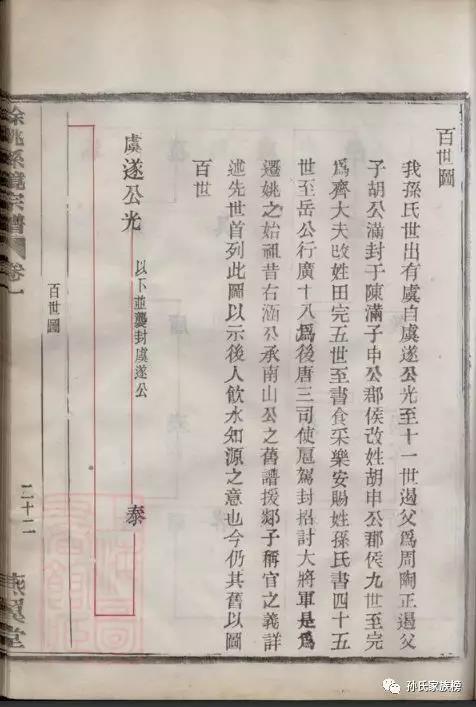 百世圖
我孫氏世出有虞自虞遂公光至十一世遏父爲周陶正遏父
子胡公滿封于陳滿子申公郡侯改姓胡申公郡侯九世至完
爲齊大夫改姓田完五世至書食采樂安賜姓孫氏書四十五
世至岳公行廣十八爲後唐三司使扈駕封招討大將軍是爲
遷姚之始祖昔右涵公承南山公之舊譜援郯子稱官之義詳
述先世首列此圖以示後人飲水知源之意也今仍其舊以圖
百世
虞遂公光
以下並襲封虞遂公
泰
餘姚孫境宗譜 卷一
百世圖
二十二
燕翼堂
孙氏家族榜